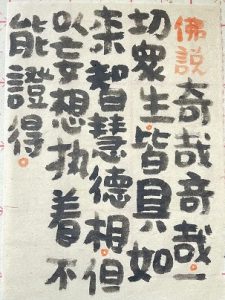 佛説奇哉奇哉一
切衆生皆具如
来智慧德相但
以妄想执着不
能證得